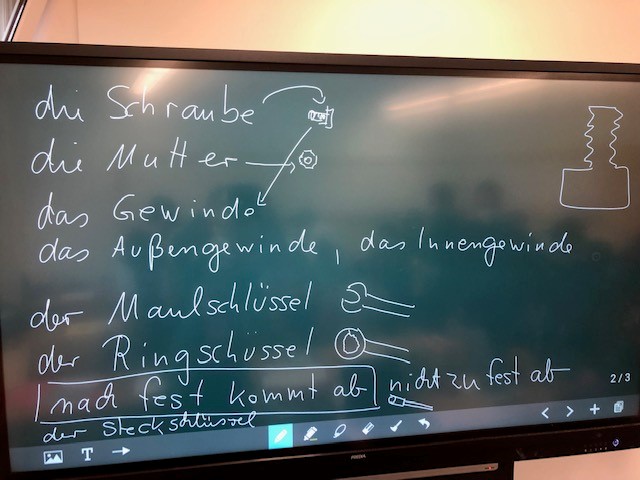 die Schraube
die Mutter
das Gewinde
das Außengewinde, das Innengewinde
der Maulschlüssel
der Ringschüssel
nach fest kommt ab nicht zu fest ab
der Steckschlüssel
2/3
T